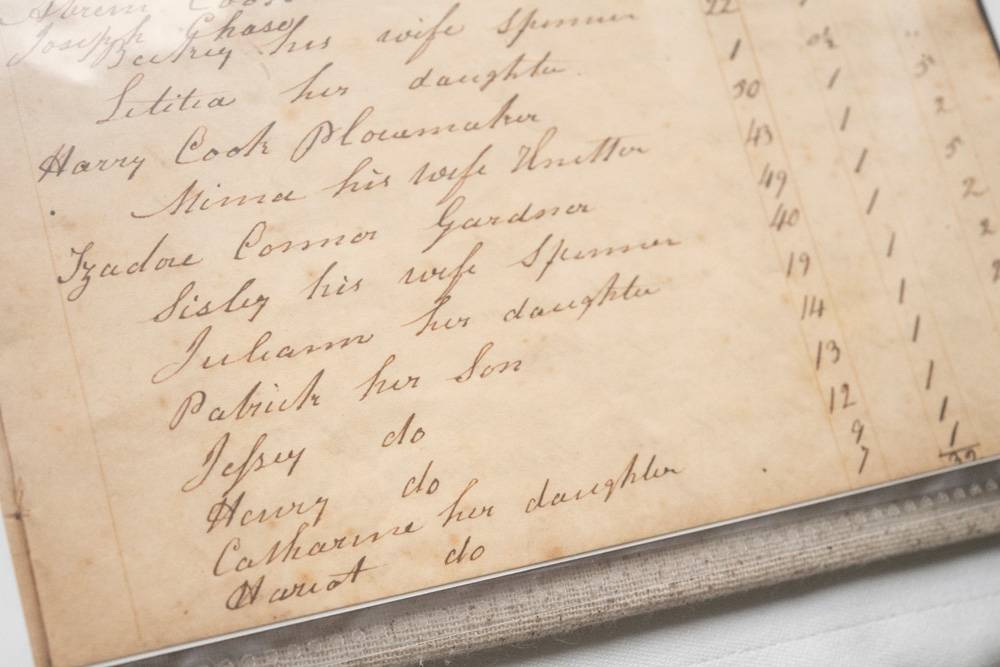 Joseph Chase
Beckey his wife Spinner 22
Letitia her daughter 1 0½ "
Harry Cook Plowmaker 30 1 5
Mima his wife Knitter 43 1 2
Izadore Connor Gardner 49 1 5
Sisley his wife Spinner 40 1 2
Juliann her daughter 19 1 2
Patrick her Son 14 1
Jessey do 13 1
Henry do 12 1
Catharine her daughter 9 1
Hariot do 7 1